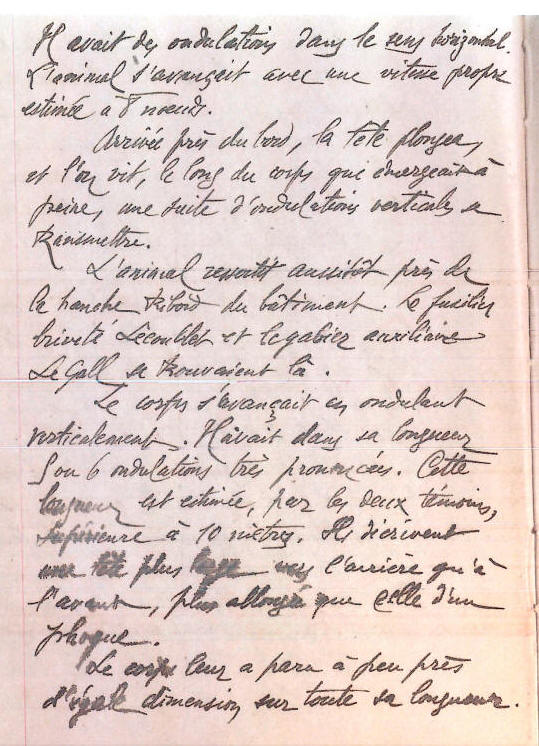 Il avait des ondulations dans le sens horizontal.
L'animal s'avançait avec une vitesse propre
estimée à 8 noeuds.
Arrivée près du bord, la tête plongea,
et l'on vit, le long du corps qui émergeait à
peine, une suite d'ondulations verticales se
transmettre.
L'animal ressortit aussitôt près de
la hanche tribord du bâtiment. Le fusilier
breveté Lecoublet et le gabier auxiliaire
Le Gall se trouvaient là.
Le corps s'avançait en ondulant
verticalement. Il avait dans sa longueur
5 ou 6 ondulations très prononcées. Cette
longueur est estimée, par les deux témoins,
supérieure à 10 mètres. Ils décrivent
une tête plus large vers l'arrière qu'à
l'avant, plus allongée que celle d'un
phoque.
Le corps leur a paru à peu près
d'égale dimension sur toute sa longueur.